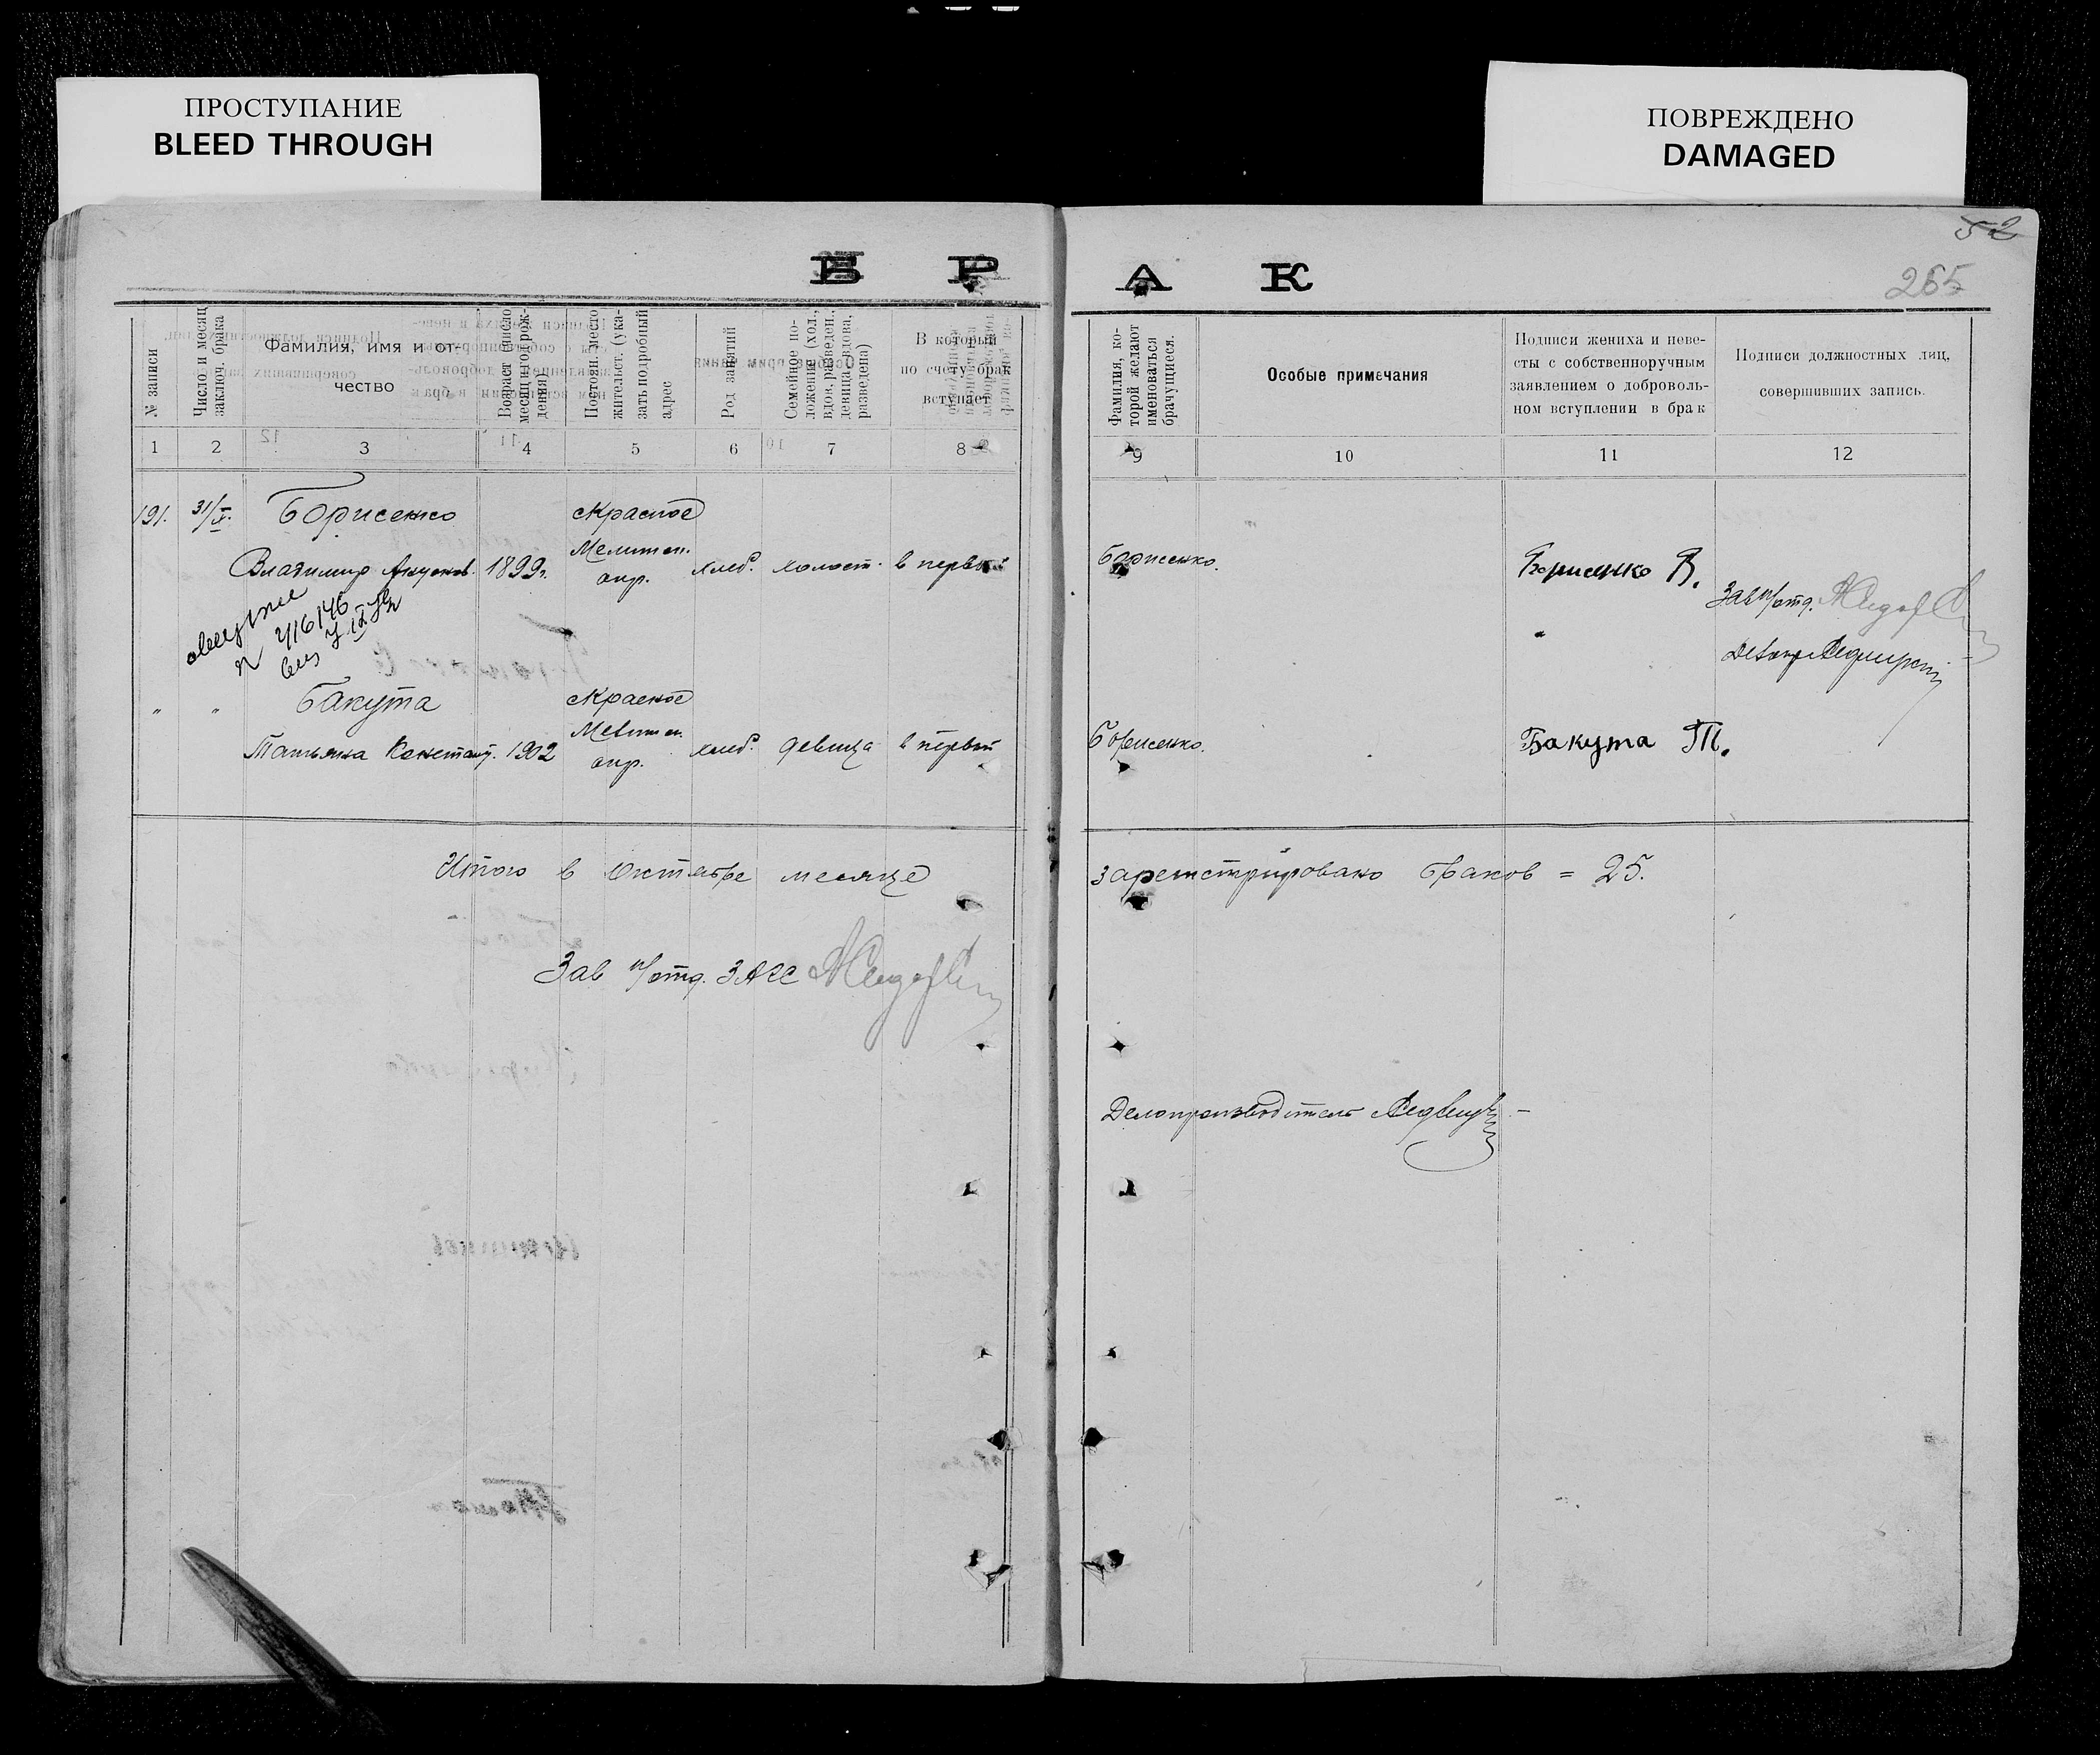 ПРОСТУПАНИЕ
BLEED THROUGH
ПОВРЕЖДЕНО
DAMAGED
52
265
Б Р А К
№ записи
Число и месяц
заключ. брака
Фамилия, имя и от-
чество
Возраст (число
месяц и год рож-
дения)
Постоян. место
жительст. (ука-
зать подробный
адрес
Род занятий
Семейное по-
ложение (хол.,
вдов, разведен.,
девица, вдова,
разведена)
В который
по счету брак
вступает
Фамилия, ко-
торой желают
именоваться
брачущиеся.
Особые примечания
Подписи жениха и неве-
сты с собственноручным
заявлением о доброволь-
ном вступлении в брак
Подписи должностных лиц,
совершивших запись.
1 2 3 4 5 6 7 8 9 10 11 12
191. 31/X. Борисенко Красное
Владимир 1899г. Мелитоп. окр. хлеб. холост. в первый Борисенко. Борисенко В.
Зав п/отд.
N 216146
" " Бакута Красное
Татьяна Констант. 1902 Мелитоп. окр. хлеб. девица в первый Борисенко. Бакута Т.
Итого в Октябре месяце зарегистрировано браков = 25.
Зав п/отд. ЗАГС
Делопроизводитель